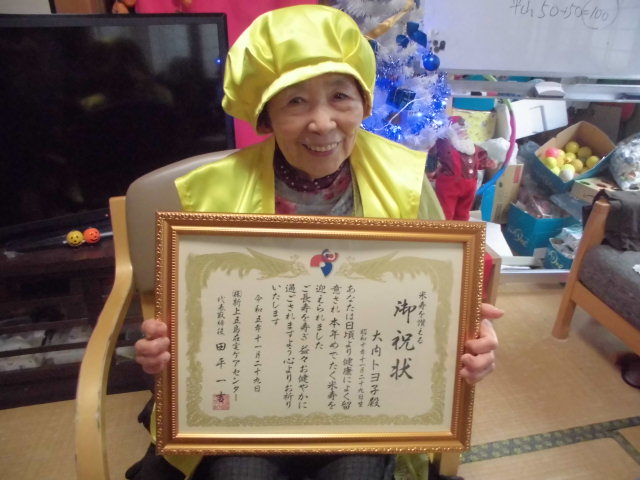 米寿を讃える
御祝状
大内トヨ子殿
昭和十年十一月二十九日生
あなたは日頃より健康によく留
意され本年めでたく米寿を
迎えられました
ご長寿を寿ぎ益々お健やかに
過ごされますよう心よりお祈り
いたします
令和五年十一月二十九日
㈱新上五島在宅ケアセンター
代表取締役 田平一吉
50+50=100